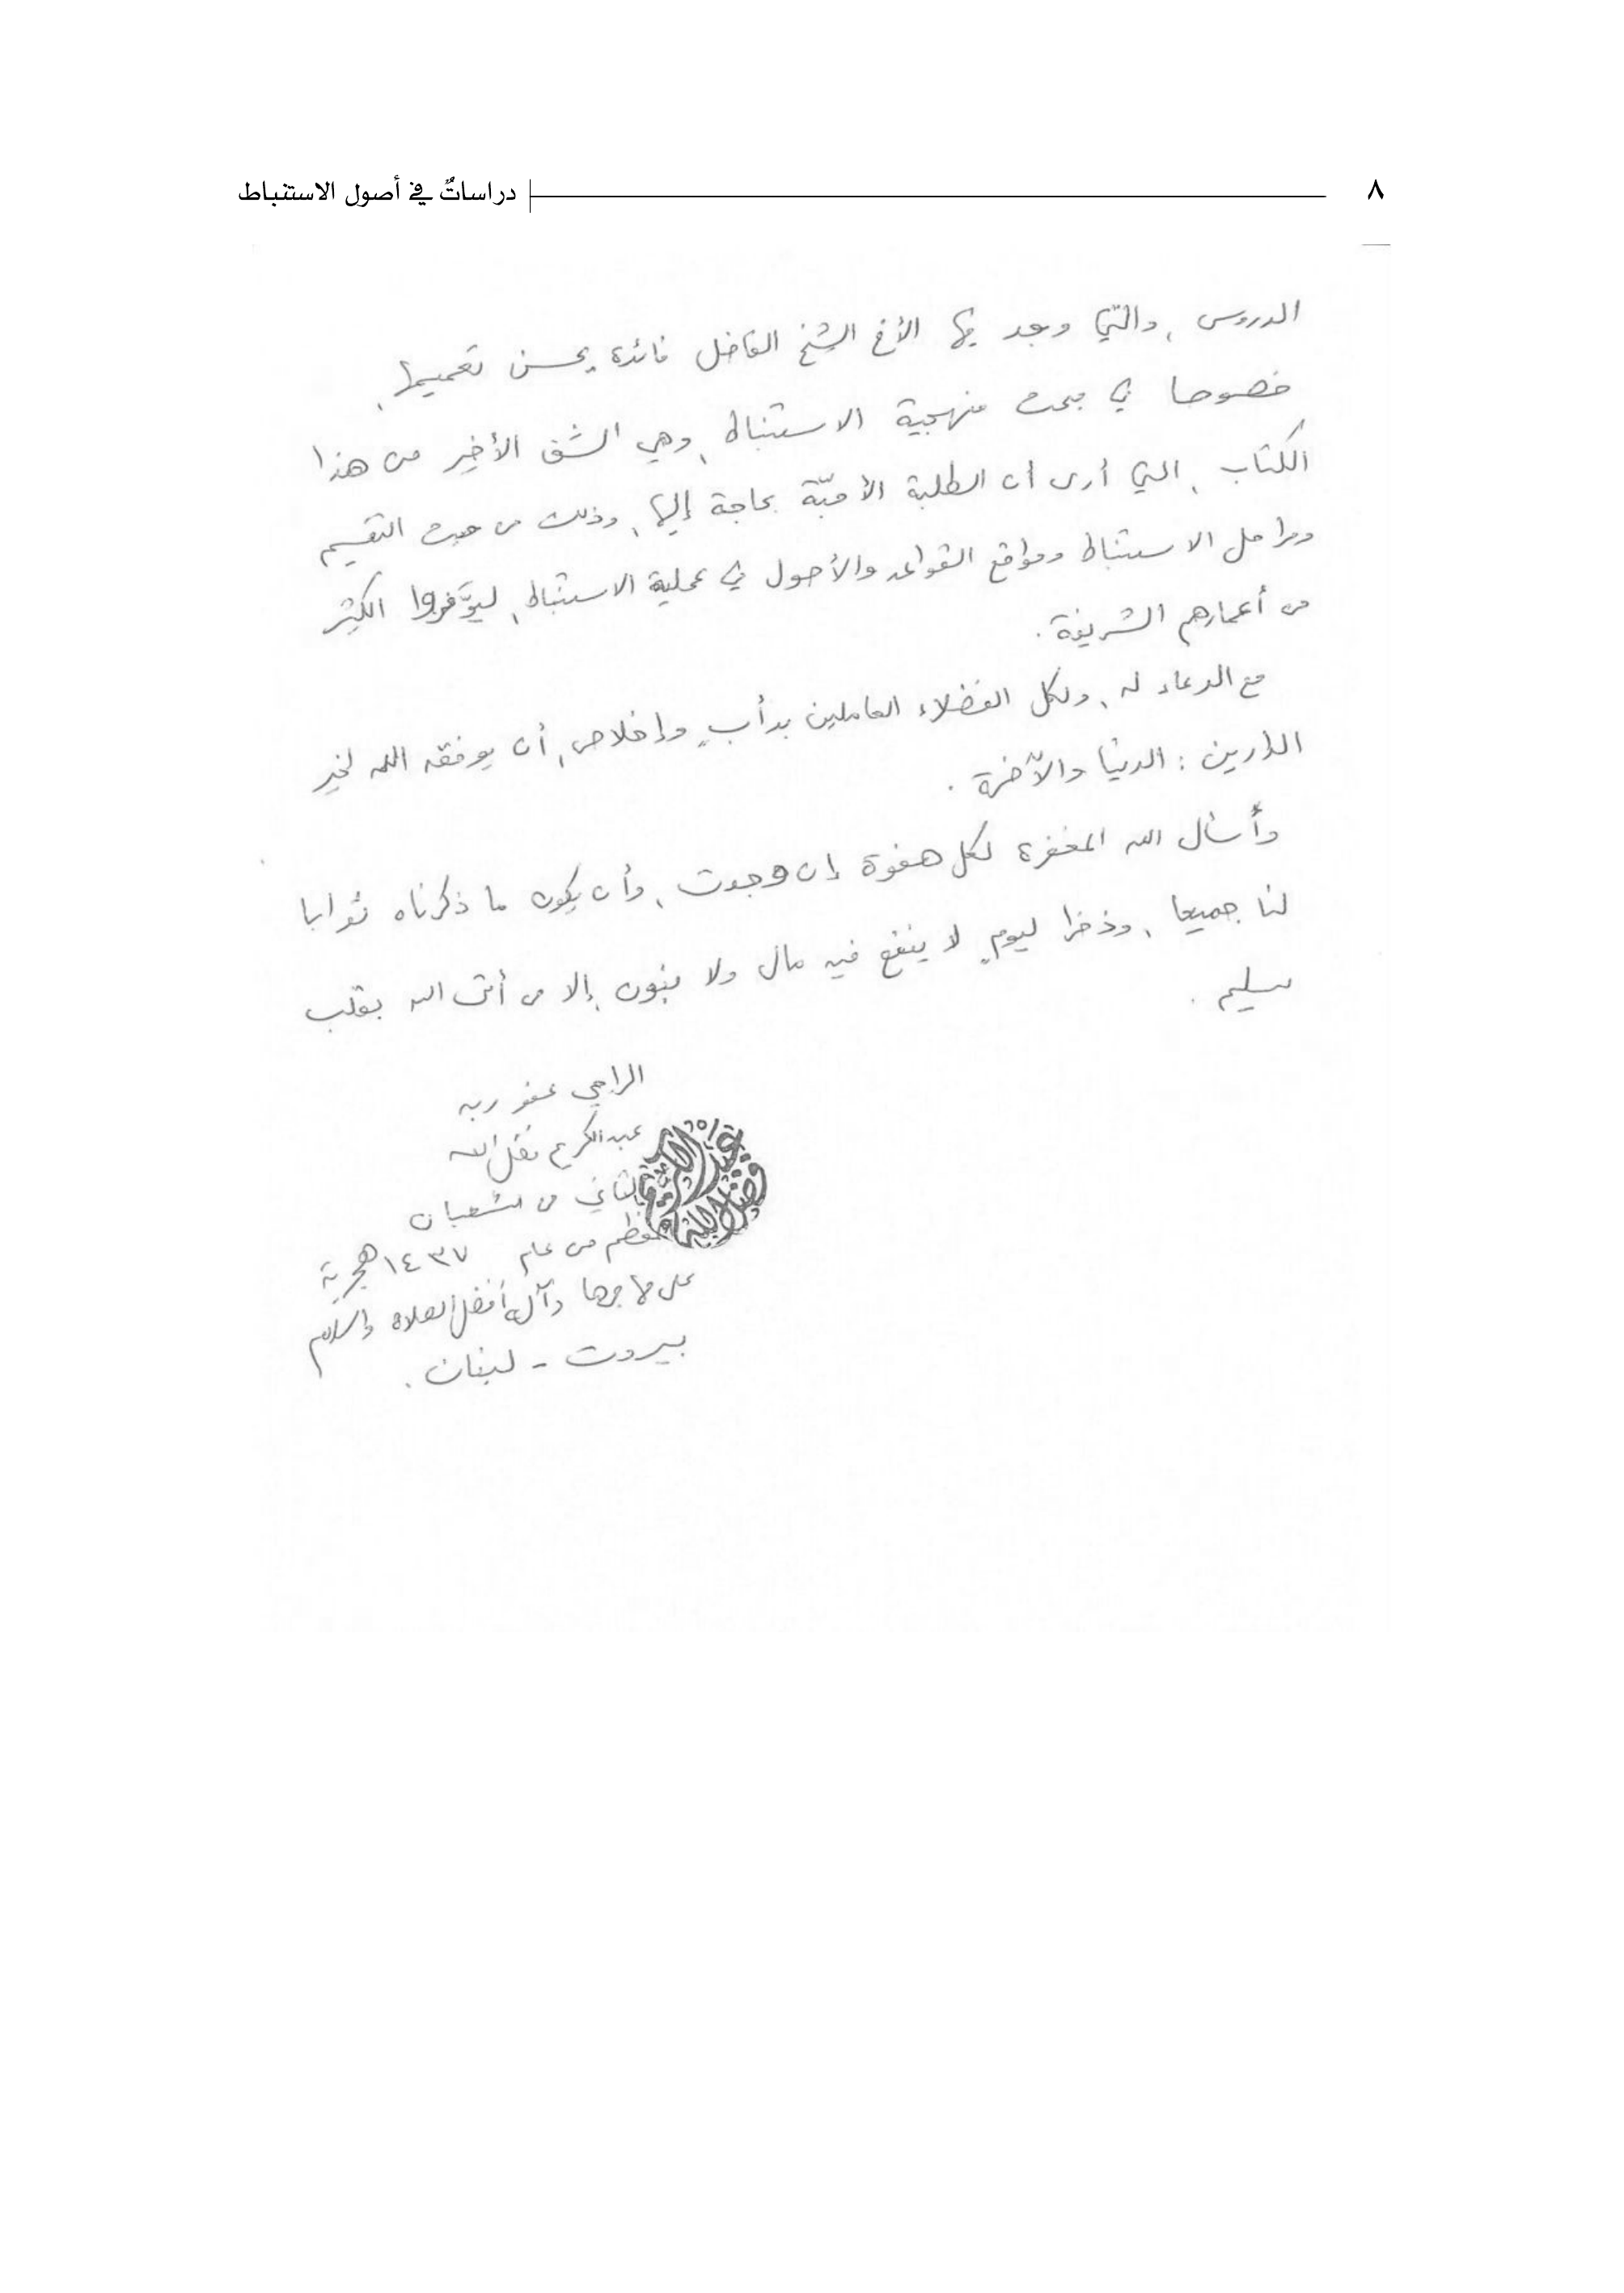 ٨ دراساتٌ في أصول الاستنباط
الدروس، والتي وجد فيها الأخ الشيخ الفاضل فائدة يحسن تعميمها،
خصوصا في مبحث منهجية الاستنباط، وهي الشق الأخير من هذا
الكتاب، التي أرى أن الطلبة الأحبّة بحاجة إليها، وذلك من حيث التقسيم
ومراحل الاستنباط ومواقع القواعد والأصول في عملية الاستنباط، ليوَفّروا الكثير
من أعمارهم الشريفة.
مع الدعاء له، ولكل الفضلاء العاملين بدأبٍ وإخلاص، أن يوفقه الله لخير
الدارين: الدنيا والآخرة.
وأسأل الله المغفرة لكل هفوة إن وجدت، وأن يكون ما ذكرناه ثوابا
لنا جميعا، وذخرا ليومٍ لا ينفع فيه مال ولا بنون، إلا من أتى الله بقلب
سليم.
الراجي عفو ربه
عبدالكريم فضل الله
الثاني من شعبان
المعظم من عام ١٤٣٧ هجرية
على مهاجرها وآله أفضل الصلاة والسلام
بيروت - لبنان.
عبد الكريم
فضل الله